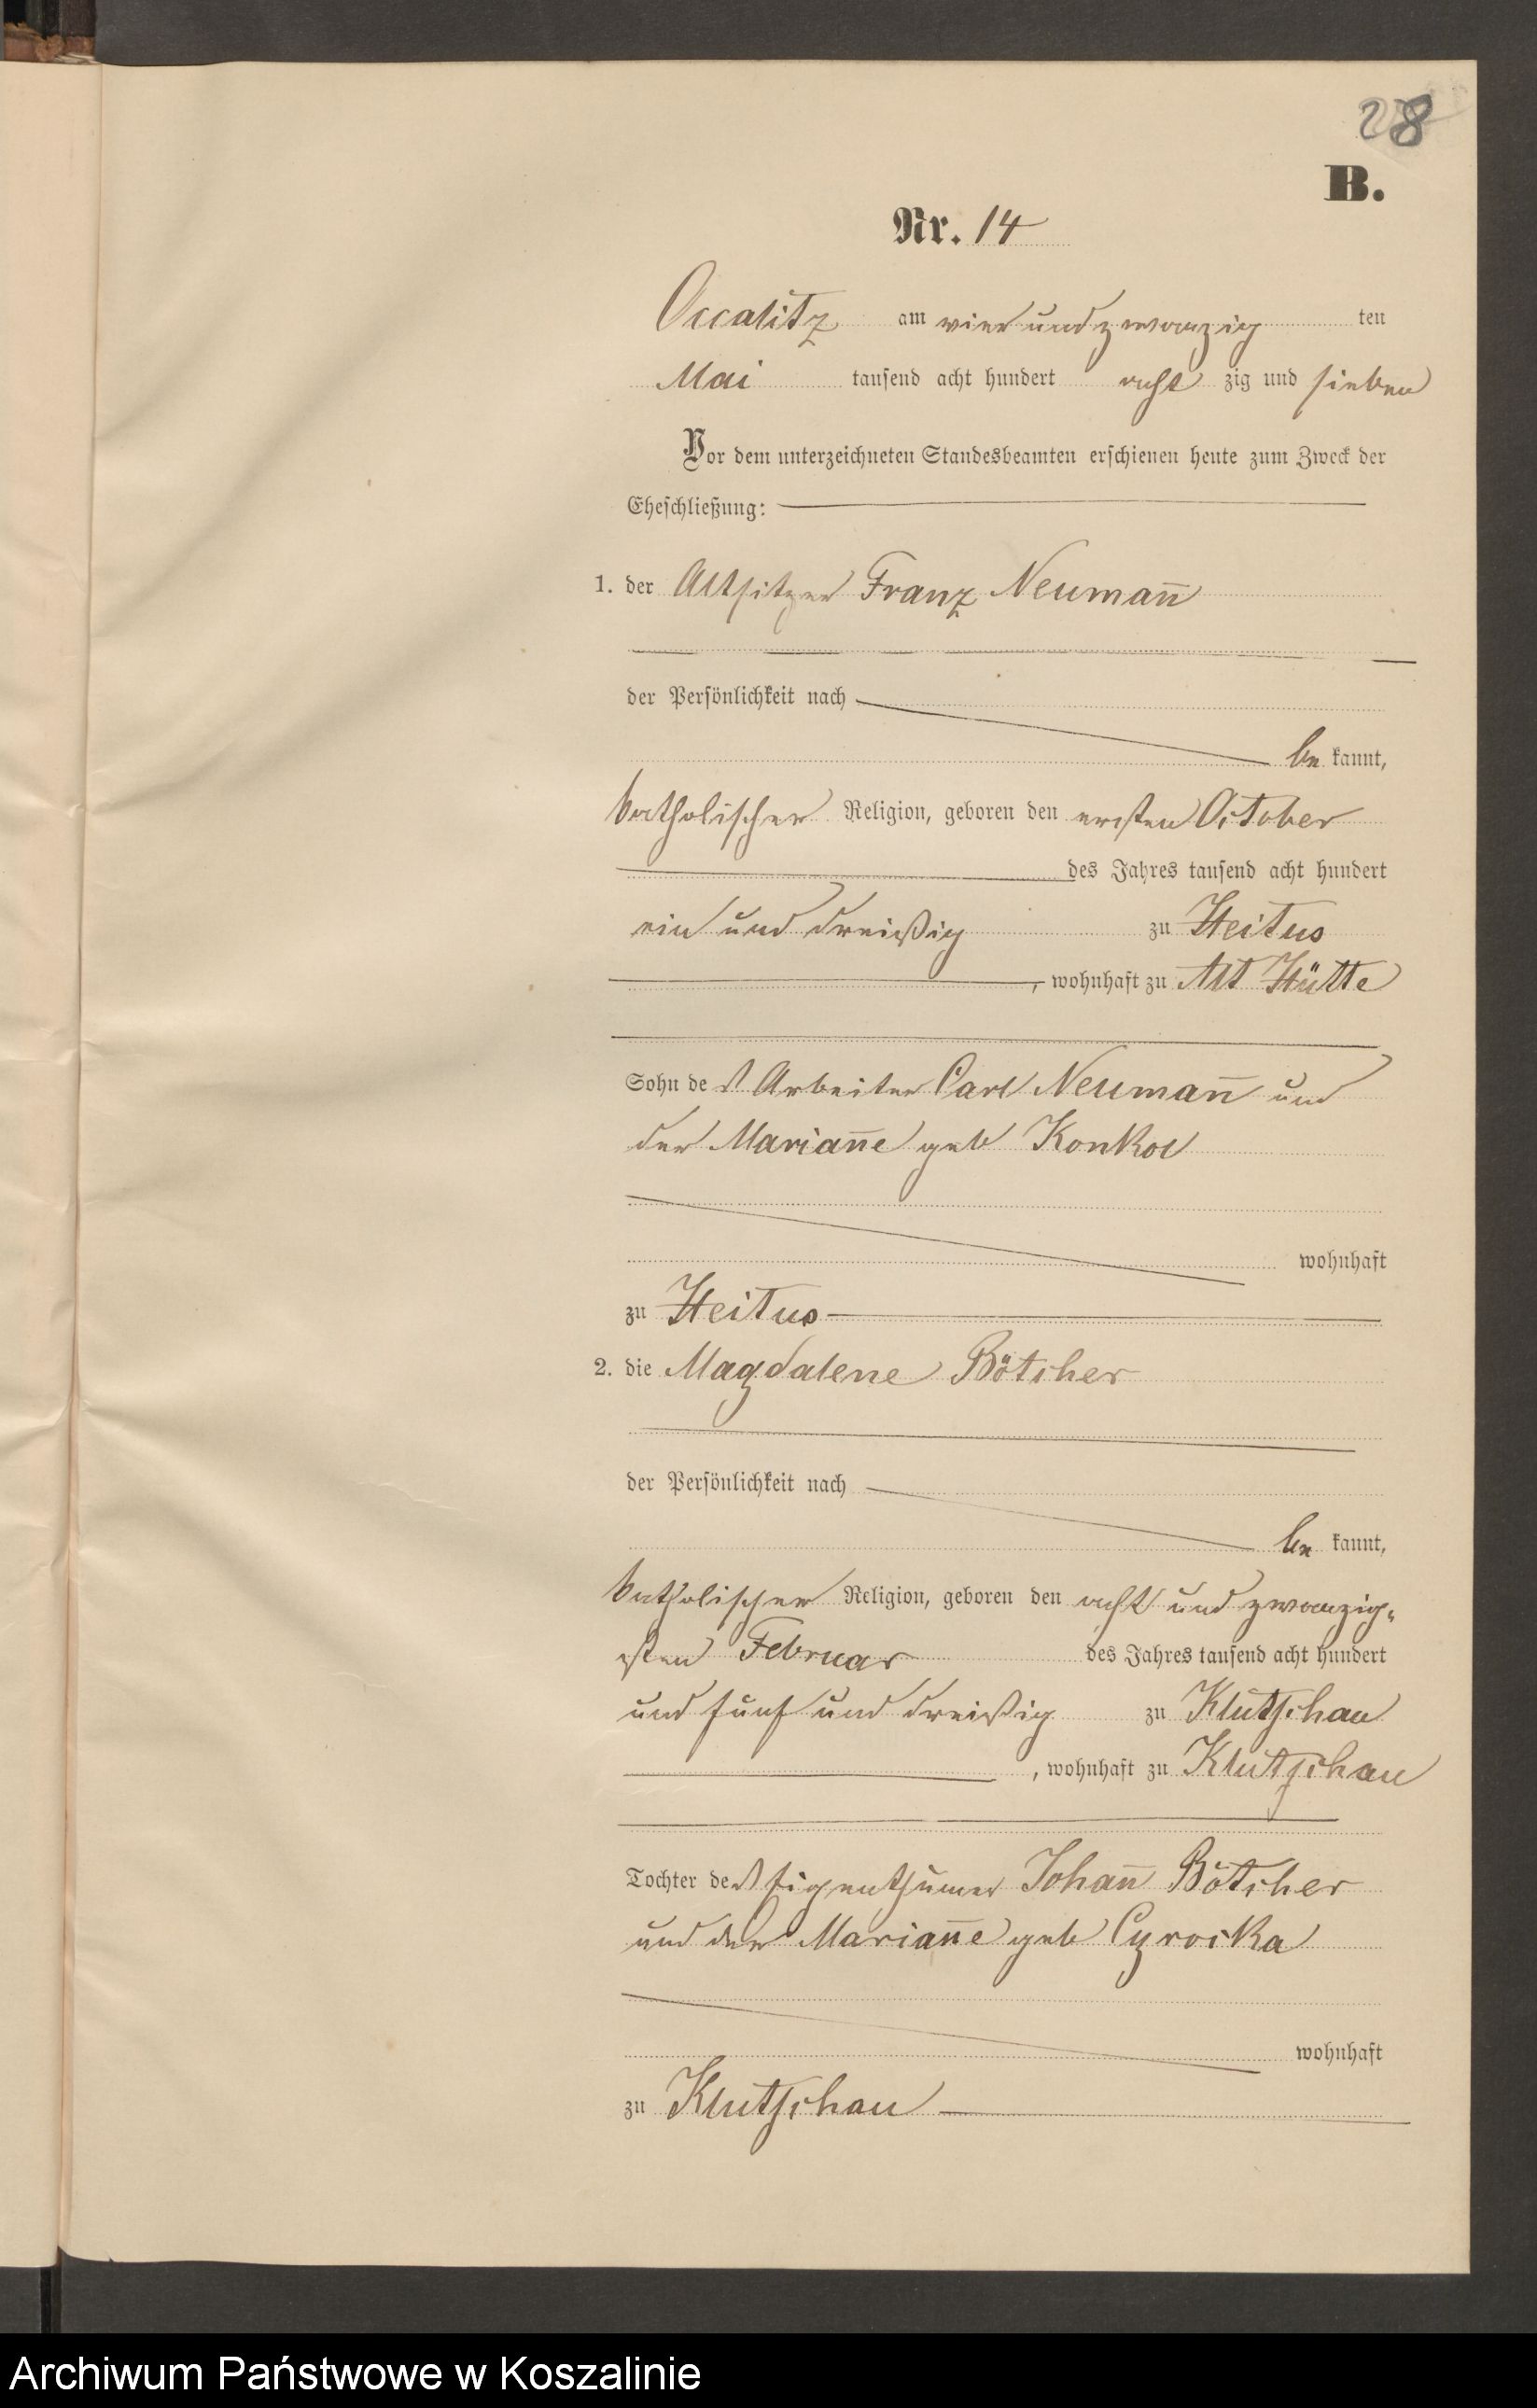 28
B.
Nr. 14
Occalitz am vier und zwanzig ten
Mai tausend acht hundert acht zig und sieben
Vor dem unterzeichneten Standesbeamten erschienen heute zum Zweck der
Eheschließung:
1. der Altsitzer Franz Neumañ
der Persönlichkeit nach
be kannt,
katholischer Religion, geboren den ersten October
des Jahres tausend acht hundert
ein und dreißig zu Heitus
, wohnhaft zu Alt Hütte
Sohn des Arbeiter Carl Neumañ und
der Mariañe geb Konkol
wohnhaft
zu Heitus
2. die Magdalene Bötcher
der Persönlichkeit nach
be kannt,
katholischer Religion, geboren den acht und zwanzig„
sten Februar des Jahres tausend acht hundert
und fünf und dreißig zu Klutschau
, wohnhaft zu Klutschau
Tochter des Eigenthümer Johañ Bötcher
und der Mariañe geb Cyrocka
wohnhaft
zu Klutschau
Archiwum Państwowe w Koszalinie